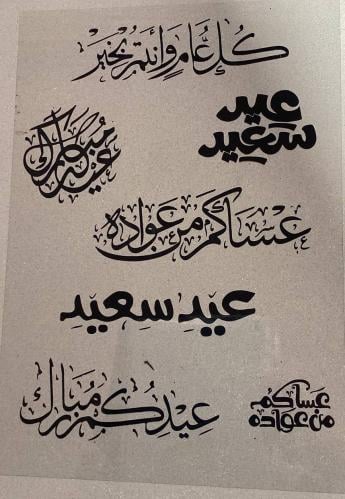 كُل عُامٍ وَأنتم بخَير
عيد سَعِيد
عيدكم مُبارك
عَسَاكُم مِن عَوادَه
عيدِ سعِيدِ
عِيدِكُم مُبَارك
عَساكُم من عواده